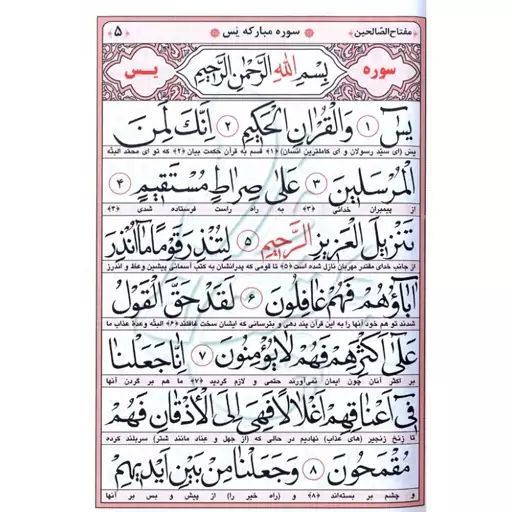 ﴿مفتاح الصّالحین﴾ سوره مبارکه یس ﴿۵﴾
سوره بِسْمِ اللهِ الرَّحْمٰنِ الرَّحیمِ یس
یسٓ ۱ وَالْقُرْانِ الْحَکیمِ ۲ اِنَّکَ لَمِنَ
یس (ای سیّد رسولان و ای کاملترین انسان) ﴿۱﴾ قسم به قرآن حکمت بیان ﴿۲﴾ که تو ای محمّد البته
الْمُرْسَلینَ ۳ عَلیٰ صِراطٍ مُسْتَقیمٍ ۴
از پیمبران خدائی ﴿۳﴾ به راه راست فرستاده شدی ﴿۴﴾
تَنْزیلَ الْعَزیزِ الرَّحیمِ ۵ لِتُنْذِرَ قَوْماً ما اُنْذِرَ
از جانب خدای مقتدر مهربان نازل شده است ﴿۵﴾ تا قومی که پدرانشان به کتب آسمانی پیشین وعظ و اندرز
اباؤُهُمْ فَهُمْ غافِلُونَ ۶ لَقَدْ حَقَّ الْقَوْلُ
شدند تو هم خود آنها را به این قرآن پند دهی و بترسانی که ایشان سخت غافلند ﴿۶﴾ البته وعده عذاب ما
عَلیٰ اَکْثَرِهِمْ فَهُمْ لا یُؤْمِنُونَ ۷ اِنّا جَعَلْنا
بر اکثر آنان چون ایمان نمی‌آورند حتمی و لازم گردید ﴿۷﴾ ما هم بر گردن آنها
فی اَعْناقِهِمْ اَغْلالاً فَهِیَ اِلَی الْاَذْقانِ فَهُمْ
تا زنخ زنجیر (های عذاب) نهادیم در حالی که (از جهل و عناد مانند شتر) سربلند کرده
مُقْمَحُونَ ۸ وَ جَعَلْنا مِنْ بَیْنِ اَیْدیهِمْ
و چشم بر بسته‌اند ﴿۸﴾ و (راه خیر را) از پیش و پس بر آنها